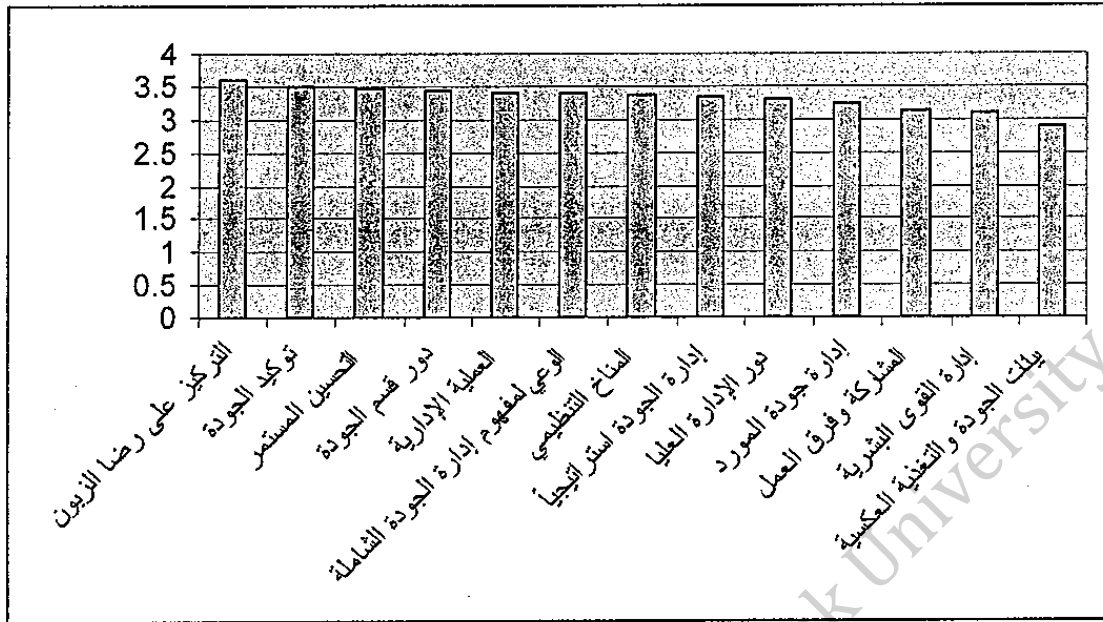 4
3.5
3
2.5
2
1.5
1
0.5
0
التركيز على رضا الزبون
توكيد الجودة
التحسين المستمر
دور قسم الجودة
العملية الإدارية
الوعي لمفهوم إدارة الجودة الشاملة
المناخ التنظيمي
إدارة الجودة استراتيجياً
دور الإدارة العليا
إدارة جودة المورد
المشاركة وفرق العمل
إدارة القوى البشرية
بيانات الجودة والتغذية العكسية
k University